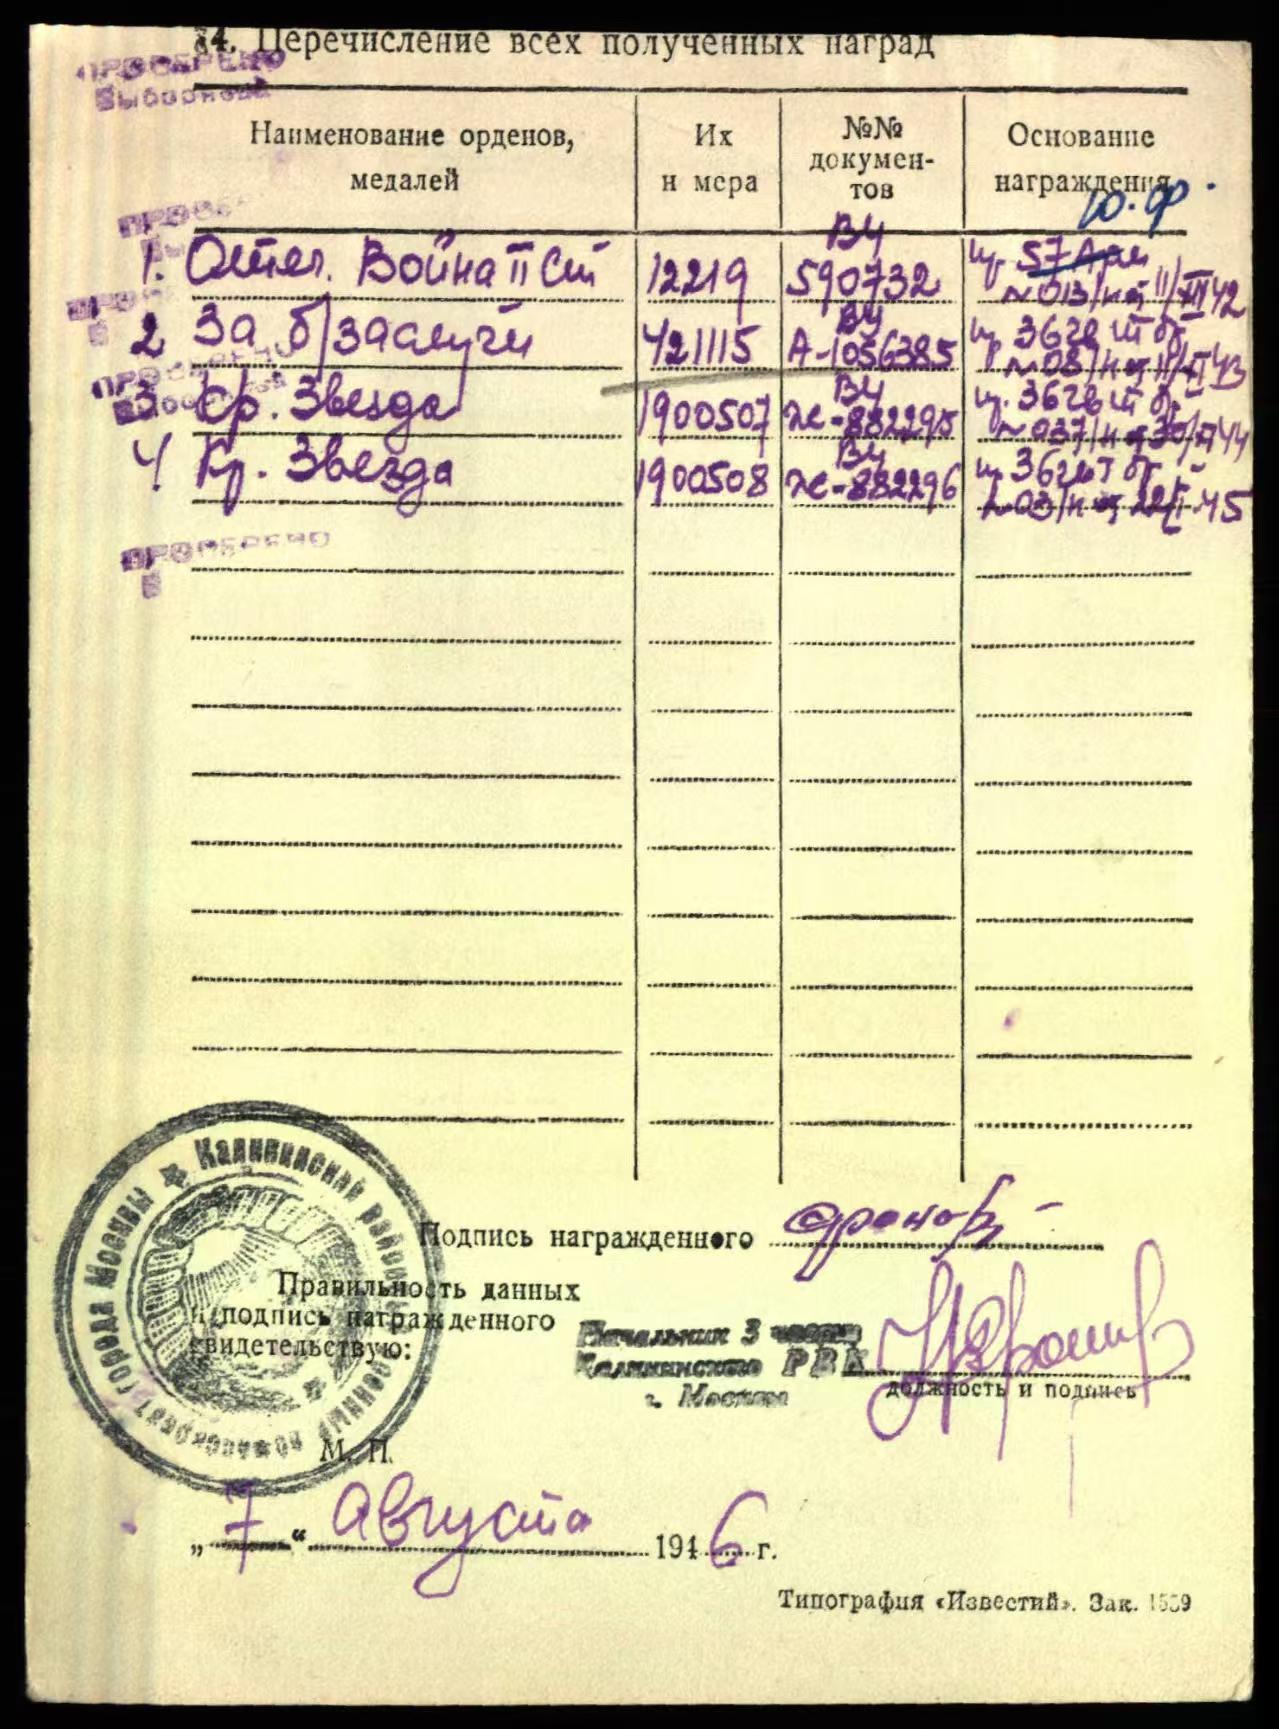 14. Перечисление всех полученных наград
ПРОВЕРЕНО
Наименование орденов, медалей
Их н мера
№№ докумен-тов
Основание награждения
Ю.Ф.
1. Отеч. Война II ст 12219 ВЧ 590732 пр. 57 Арм №013/н от 11/XII 42
2 За б/заслуги 421115 ВЧ А-1056385 пр. 36 гв тт бр №08/н от 11/VI 43
3 Кр. Звезда 1900507 ВЧ Ж-882295 пр. 36 гв тт бр №037/н от 44
4 Кр. Звезда 1900508 ВЧ Ж-882296 пр. 36 гв т бр №03/н от 22/I-45
ПРОВЕРЕНО
Подпись награжденного
Правильность данных
и подпись награжденного
свидетельствую:
Начальник 3 части
Калининского РВК
г. Москвы
должность и подпись
Калининский районный военный комиссариат города Москвы
М. П.
„7“ Августа 1946 г.
Типография «Известий». Зак.